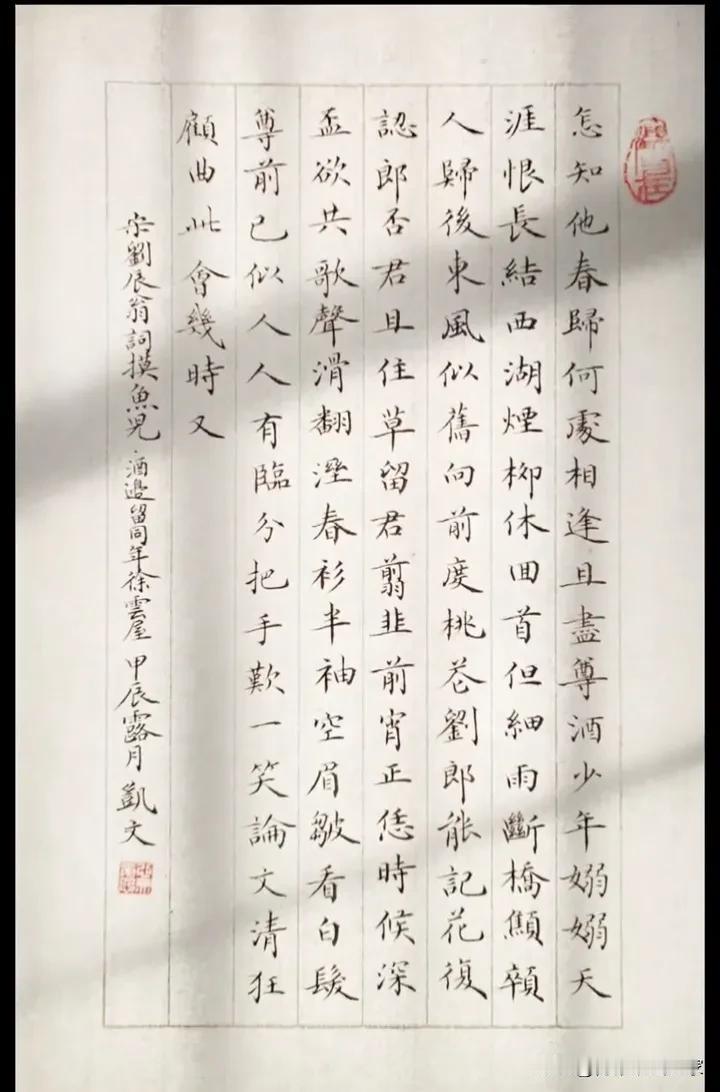 怎知他春歸何處相逢且盡尊酒少年嫋嫋天
涯恨長結西湖煙柳休回首但細雨斷橋顦顇
人歸後東風似舊向前度桃花劉郎能記花復
認郎否君且住草留君翦韭前宵正恁時候深
盃欲共歌聲滑翻溼春衫半袖空眉皺看白髮
尊前已似人人有臨分把手歎一笑論文清狂
顧曲此會幾時又
宋劉辰翁詞摸魚兒·酒邊留同年徐雲屋 甲辰露月 凱文